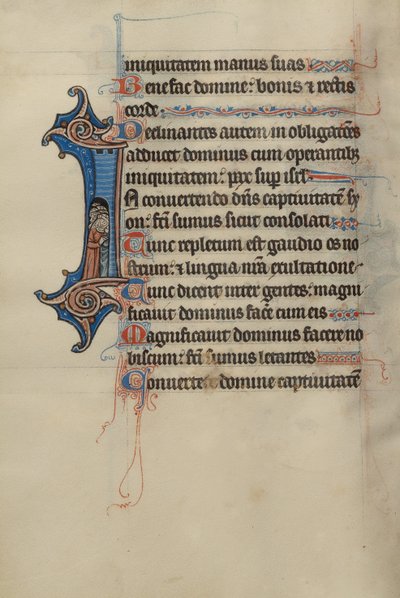 iniquitatem manus suas
Benefac domine: bonis ⁊ rectis
corde
Declinantes autem in obligatões
adducet dominus cum operantibꝫ
iniquitatem: pax sup isrl.
In convertendo dñs captivitatē sy
on: fc̄i sumus sicut consolati
Tunc repletum est gaudio os no
strum: ⁊ lingua nrā exultatione
Tunc dicent inter gentes: magni
ficavit dominus facĕ cum eis
Magnificavit dominus facere no
biscum: fc̄i sumus letantes
Converte domine captivitatē